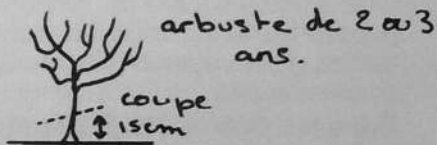 arbuste de 2 ou 3
ans.
coupe
15cm